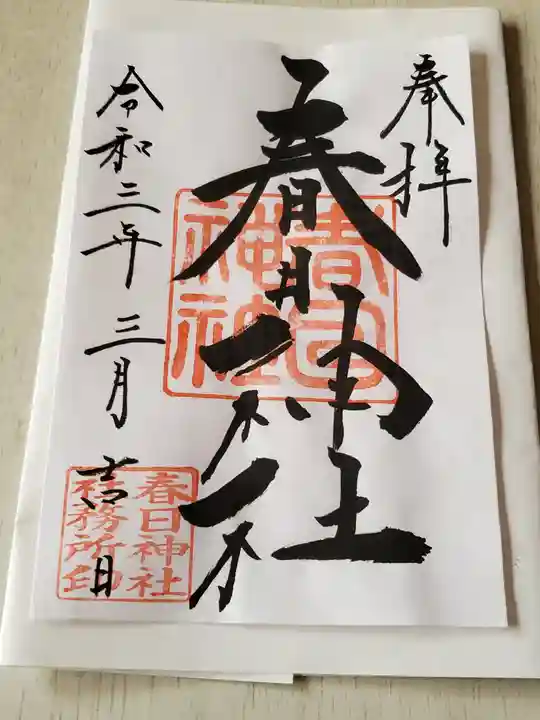 奉拝
春日神社
春日
神社
令和三年三月吉日
春日神社
社務所印